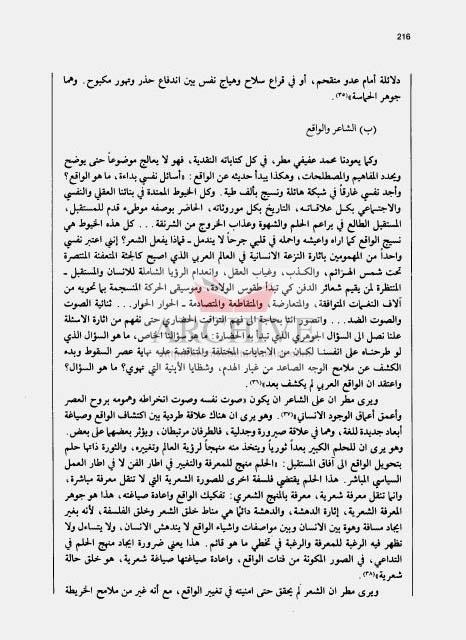 216
دلائلة أمام عدو متقحم، أو في قراع سلاح وهياج نفس بين اندفاع حذر وتهور مكبوح. وهما
جوهر الحماسة»(٣٥).
(ب) الشاعر والواقع
وكما يعودنا محمد عفيفي مطر، في كل كتاباته النقدية، فهو لا يعالج موضوعاً حتى يوضح
ويحدد المفاهيم والمصطلحات، وهكذا يبدأ حديثه عن الواقع: «أسائل نفسي بداءة، ما هو الواقع؟
وأجد نفسي غارقاً في شبكة هائلة ونسيج بألف طية. وكل الخيوط الممتدة في بنائنا العقلي والنفسي
والاجتماعي بكل علاقاته، التاريخ بكل موروثاته، الحاضر بوصفه موطىء قدم للمستقبل،
المستقبل الطالع في براعم الحلم والشهوة وعذاب الخروج من الشرنقة... كل هذه الخيوط هي
نسيج الواقع كما اراه واعيشه واحمله في قلبي جرحاً لا يندمل ـ فماذا يفعل الشعر؟ إنني اعتبر نفسي
واحداً من المهمومين بإثارة النزعة الانسانية في العالم العربي الذي اصبح كالجثة المتعفنة المنتصرة
تحت شمس الهزائم، والكذب، وغياب العقل، وانعدام الرؤيا الشاملة للانسان والمستقبل ـ
المنتظرة لمن يقيم شعائر الدفن كي تبدأ طقوس الولادة، وموسيقى الحركة المنسجمة بما تحويه من
آلاف النغمات المتوافقة، والمتعارضة، والمتقاطعة والمتصادمة ـ الحوار الحوار... ثنائية الصوت
والصوت الضد... واتصور اننا بحاجة الى فهم التوافت الحضاري حتى نفهم من اثارة الاسئلة
علنا نصل الى السؤال الجوهري الذي تبدأ به الحضارة: ما هو سؤالنا الخاص، ما هو السؤال الذي
لو طرحناه على انفسنا لكان من الاجابات المختلفة والمتناقضة عليه نهاية عصر السقوط وبدء
الكشف عن ملامح الوجه الصاعد من غبار الهدم، وشظايا الأبنية التي تهوي؟ ما هو السؤال؟
واعتقد ان الواقع العربي لم يكشف بعد»(٣٦).
ويرى مطر ان على الشاعر ان يكون «صوت نفسه وصوت انخراطه وهمومه بروح العصر
وأعمق أعماق الوجود الانساني»(٣٧). وهو يرى ان هناك علاقة طردية بين اكتشاف الواقع وصياغة
أبعاد جديدة للغة، وهما في علاقة صيرورة وجدلية، فالطرفان مرتبطان، ويؤثر بعضهما على بعض.
وهو يرى ان للحلم الكبير بعداً ثورياً ويتخذ منه منهجاً لرؤية العالم وتغييره، والثورة ذاتها حلم
بتحويل الواقع الى آفاق المستقبل: «الحلم منهج للمعرفة والتغيير في اطار الفن لا في اطار العمل
السياسي المباشر. هذا الحلم يقتضي فلسفة اخرى للصورة الشعرية التي لا تنقل معرفة مباشرة،
وانما تنقل معرفة شعرية، معرفة بالمنهج الشعري: تفكيك الواقع واعادة صياغته، هذا هو جوهر
المعرفة الشعرية، إثارة الدهشة، والدهشة دائماً هي مناط خلق الشعر وخلق الفلسفة، لأنه بغير
ايجاد مسافة وهوة بين الانسان وبين مواصفات واشياء الواقع لا يندهش الانسان، ولا يتساءل ولا
تظهر فيه الرغبة للمعرفة والرغبة في تخطي ما هو قائم. هذا يعني ضرورة ايجاد منهج الحلم في
التداعي، في الصور المكونة من فتات الواقع، واعادة صياغتها صياغة شعرية، هو خلق حالة
شعرية»(٣٨).
ويرى مطر ان الشعر لم يحقق حتى امنيته في تغيير الواقع، مع أنه غير من ملامح الخريطة
ARCHIVE